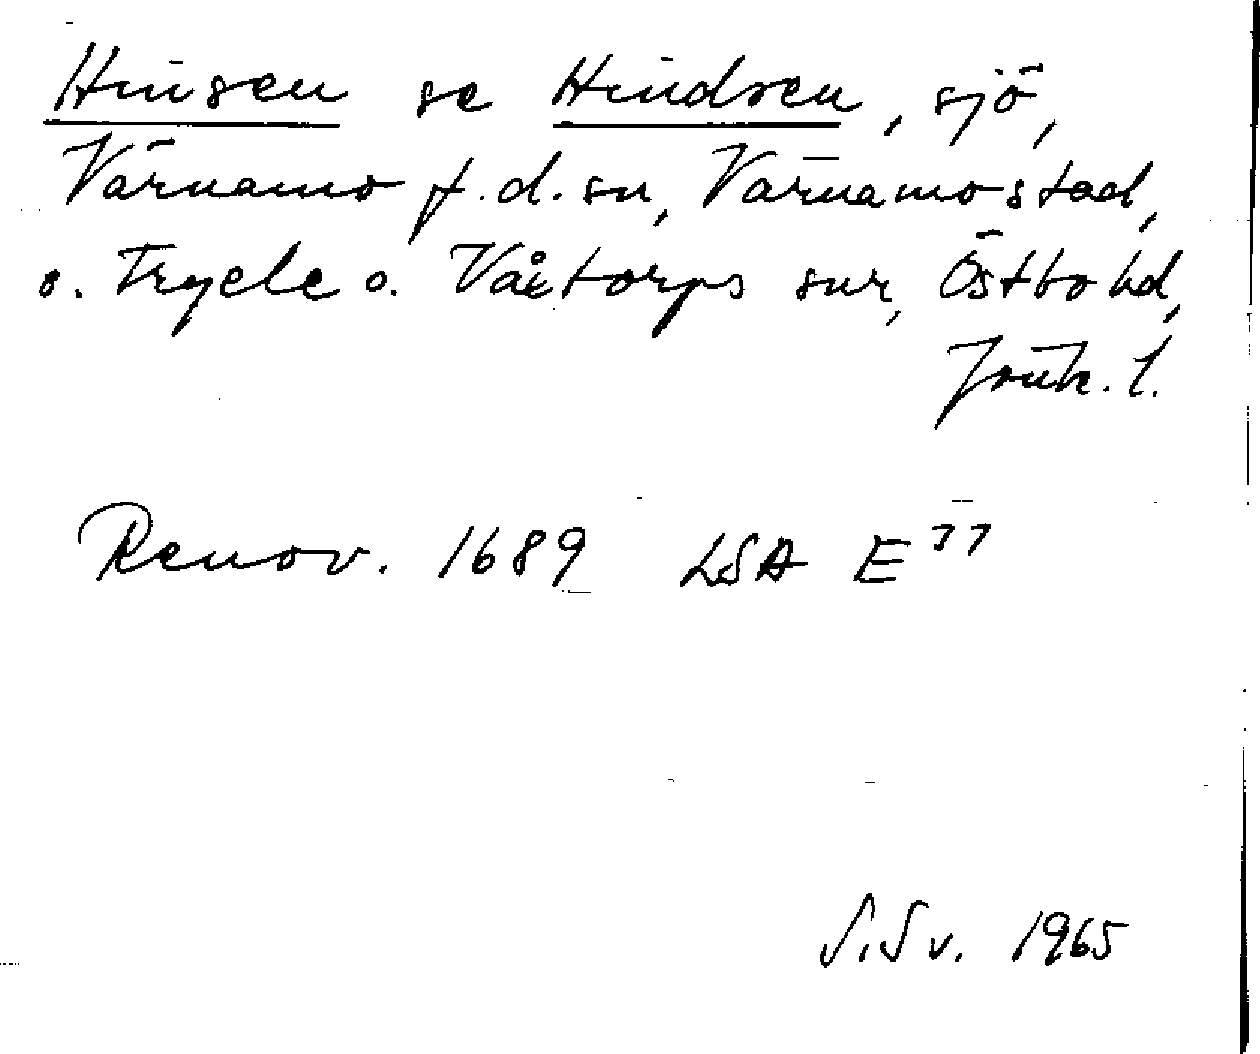 Hinsen se Hindsen, sjö,
Värnamo f.d. sn, Värnamo stad,
o. Tryele o. Våtorps snr, Östbo hd,
Jönk. l.
Renov. 1689 LSA E 77
S. Sv. 1965